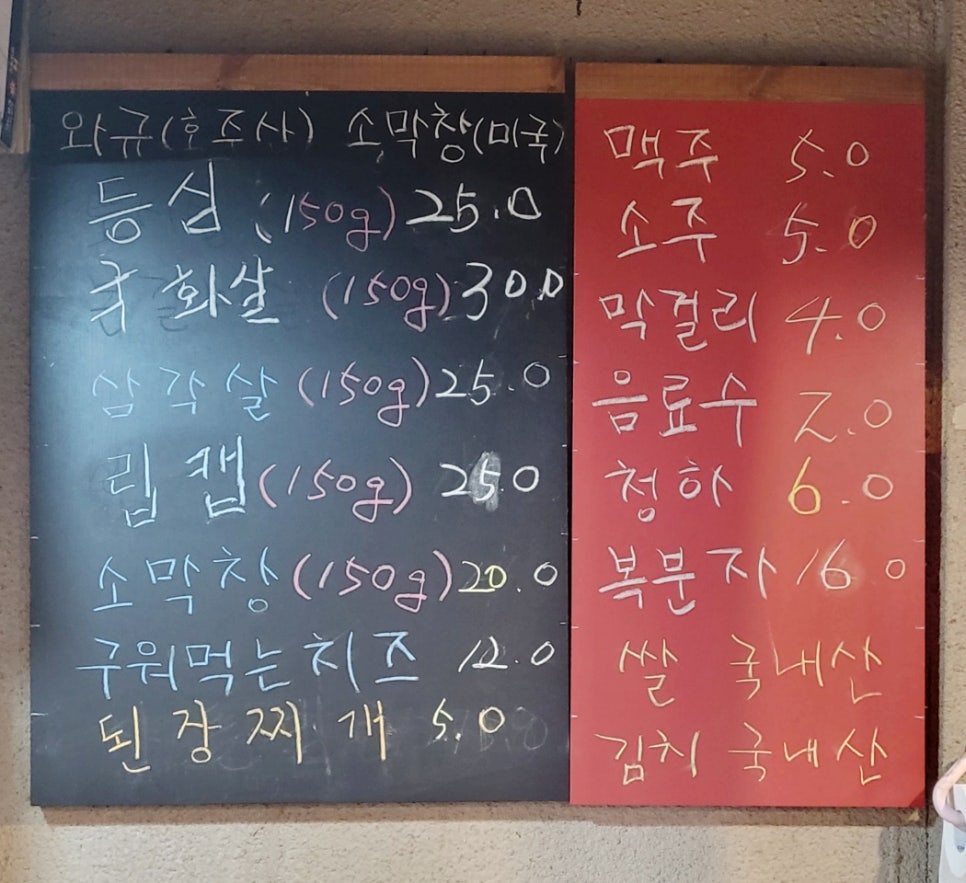 와규(호주사) 소막창(미국)
등심 (150g) 25.0
국화살 (150g) 30.0
삼각살 (150g) 25.0
립캡 (150g) 25.0
소막창 (150g) 20.0
구워먹는치즈 12.0
된장찌개 5.0
맥주 5.0
소주 5.0
막걸리 4.0
음료수 2.0
청하 6.0
복분자 16.0
쌀 국내산
김치 국내산